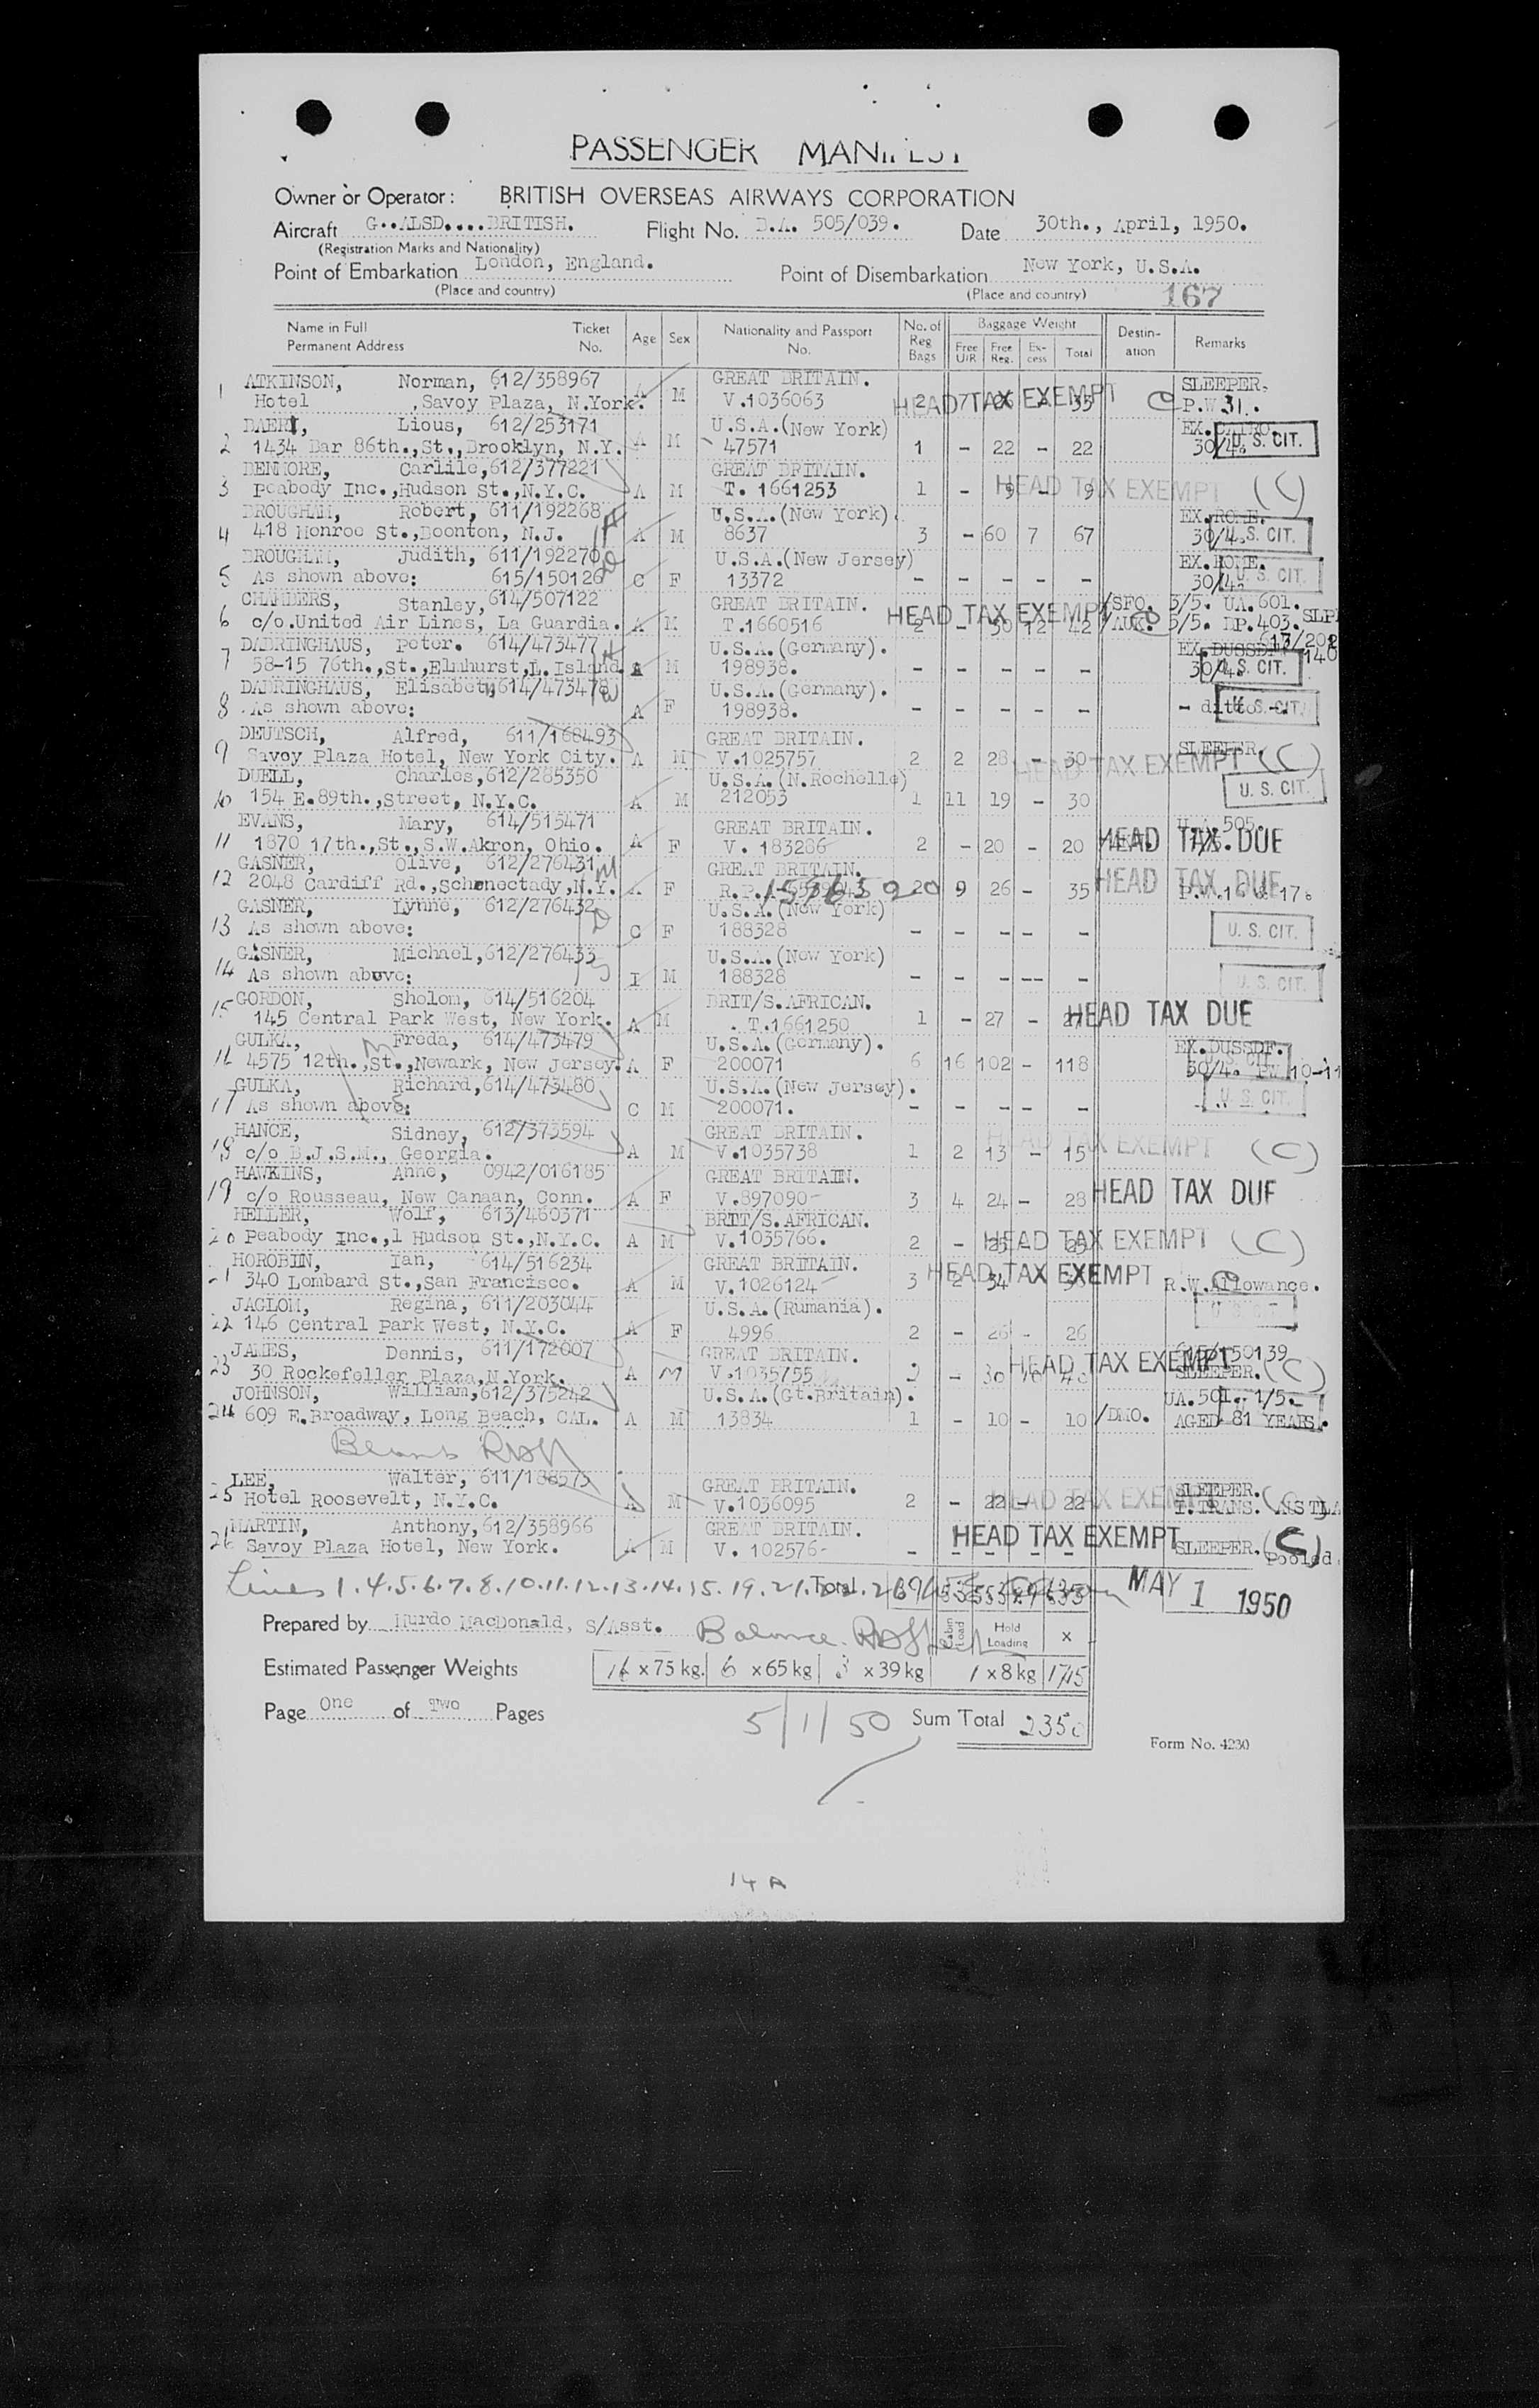 PASSENGER MANIFEST
Owner or Operator: BRITISH OVERSEAS AIRWAYS CORPORATION
Aircraft G..ALSD....BRITISH. Flight No. B.A. 505/039. Date 30th., April, 1950.
(Registration Marks and Nationality)
Point of Embarkation London, England. Point of Disembarkation New York, U.S.A.
(Place and country) (Place and country) 167
Name in Full Permanent Address Ticket No. Age Sex Nationality and Passport No. No. of Reg Bags Baggage Weight Free U/R Free Reg. Ex-cess Total Destin-ation Remarks
1 ATKINSON, Norman, 612/358967 A M GREAT BRITAIN. SLEEPER.
Hotel ,Savoy Plaza, N.York. V.1036063 2 7 35 HEAD TAX EXEMPT C P.W.31.
Lious, 612/253171 U.S.A.(New York) EX.CAIRO.
2 1434 Bar 86th.,St.,Brooklyn, N.Y. A M 47571 1 - 22 - 22 30/4. U. S. CIT.
DENMORE, Carlile,612/377221 GREAT BRITAIN.
3 Peabody Inc.,Hudson St.,N.Y.C. A M T. 1661253 1 - 9 - 9 HEAD TAX EXEMPT (C)
BROUGHAM, Robert, 611/192268 U.S.A.(New York). EX.ROME.
4 418 Monroe St.,Boonton, N.J. A M 8637 3 - 60 7 67 30/4. U. S. CIT.
BROUGHAM, Judith, 611/192270 U.S.A.(New Jersey) EX.ROME.
5 As shown above: 615/150126 C F 13372 - - - - - 30/4. U. S. CIT.
CHAMBERS, Stanley, 614/507122 GREAT BRITAIN. /SFO. 3/5. UA.601.
6 c/o.United Air Lines, La Guardia. A M T.1660516 2 - 30 12 42 HEAD TAX EXEMPT /AUK. 5/5. BP.403. SLPR
DABRINGHAUS, Peter. 614/473477 U.S.A.(Germany). EX.DUSSDF.
7 58-15 76th.,St.,Elmhurst,L.Island. A M 198938. - - - - - 30/4. U. S. CIT. 140
DABRINGHAUS, Elisabeth,614/473478 U.S.A.(Germany).
8 .As shown above: A F 198938. - - - - - - ditto - U. S. CIT.
DEUTSCH, Alfred, 611/168493 GREAT BRITAIN. SLEEPER.
9 Savoy Plaza Hotel, New York City. A M V.1025757 2 2 28 - 30 HEAD TAX EXEMPT (C)
DUELL, Charles,612/285350 U.S.A.(N.Rochelle)
10 154 E.89th.,Street, N.Y.C. A M 212053 1 11 19 - 30 U. S. CIT.
EVANS, Mary, 614/515471 GREAT BRITAIN. U.A.505.
11 1870 17th.,St.,S.W.Akron, Ohio. A F V. 183286 2 - 20 - 20 HEAD TAX DUE
GASNER, Olive, 612/276431 GREAT BRITAIN.
12 2048 Cardiff Rd.,Schenectady,N.Y. A F 9 26 - 35 HEAD TAX DUE P.W.16 & 17.
GASNER, Lynne, 612/276432 U.S.A.(New York)
13 As shown above: C F 188328 - - - - - U. S. CIT.
GASNER, Michael,612/276433 U.S.A.(New York)
14 As shown above: I M 188328 - - - - - U. S. CIT.
15 GORDON, Sholom, 614/516204 BRIT/S.AFRICAN.
145 Central Park West, New York. A M T.1661250 1 - 27 - 27 HEAD TAX DUE
GULKA, Freda, 614/473479 U.S.A.(Germany). EX.DUSSDF.
16 4575 12th.,St.,Newark, New Jersey. A F 200071 6 16 102 - 118 30/4. PW 10-11 U. S. CIT.
GULKA, Richard,614/473480 U.S.A.(New Jersey).
17 As shown above: C M 200071. - - - - - U. S. CIT.
HANCE, Sidney, 612/373594 GREAT BRITAIN.
18 c/o B.J.S.M., Georgia. A M V.1035738 1 2 13 - 15 HEAD TAX EXEMPT (C)
HAWKINS, Anne, 0942/016185 GREAT BRITAIN.
19 c/o Rousseau, New Canaan, Conn. A F V.897090 3 4 24 - 28 HEAD TAX DUE
HELLER, Wolf, 613/460371 BRIT/S.AFRICAN.
20 Peabody Inc.,1 Hudson St.,N.Y.C. A M V.1035766. 2 - 25 - 25 HEAD TAX EXEMPT (C)
HOROBIN, Ian, 614/516234 GREAT BRITAIN.
21 340 Lombard St.,San Francisco. A M V.1026124 3 2 34 HEAD TAX EXEMPT R.W.Allowance.
JAGLOM, Regina, 611/203044 U.S.A.(Rumania).
22 146 Central Park West, N.Y.C. A F 4996 2 - 26 - 26
JAMES, Dennis, 611/172007 GREAT BRITAIN. 615/150139
23 30 Rockefeller Plaza,N.York. A M V.1035755 - 30 HEAD TAX EXEMPT SLEEPER. (C)
JOHNSON, William,612/375242 U.S.A.(Gt.Britain). UA.501. 1/5.
24 609 E.Broadway, Long Beach, CAL. A M 13834 1 - 10 - 10 /DMO. AGED 81 YEARS.
LEE, Walter, 611/188575 GREAT BRITAIN. SLEEPER.
25 Hotel Roosevelt, N.Y.C. A M V.1036095 2 - 22 - 22 HEAD TAX EXEMPT (C)
MARTIN, Anthony,612/358966 GREAT BRITAIN.
26 Savoy Plaza Hotel, New York. A M V. 102576 - - - - - HEAD TAX EXEMPT SLEEPER. (C) Pooled.
Lines 1.4.5.6.7.8.10.11.12.13.14.15.19.21. Total MAY 1 1950
Prepared by Murdo MacDonald, S/Asst. Balance Cabin Load Hold Loading x
Estimated Passenger Weights 16 x 75 kg. 6 x 65 kg 3 x 39 kg 1 x 8 kg 1715
Page One of Two Pages 5/1/50 Sum Total 2350
Form No. 4230
14 A